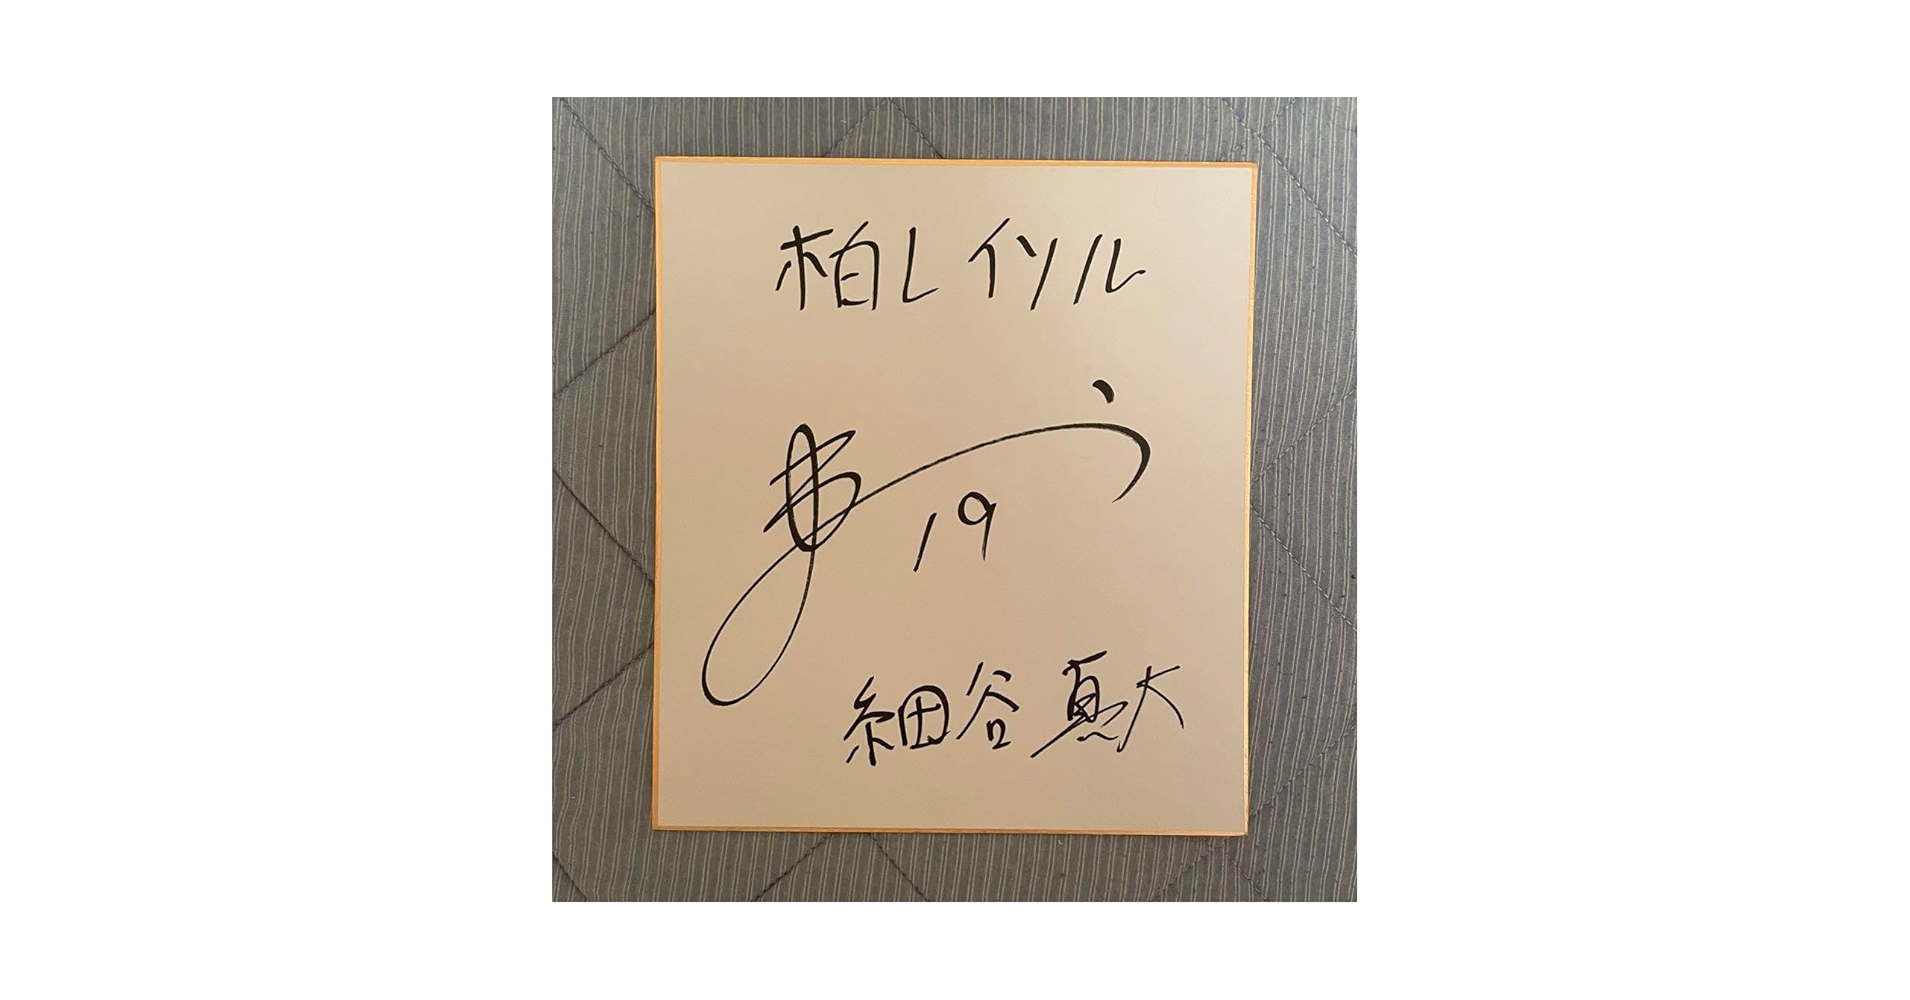 柏レイソル
19
細谷真大